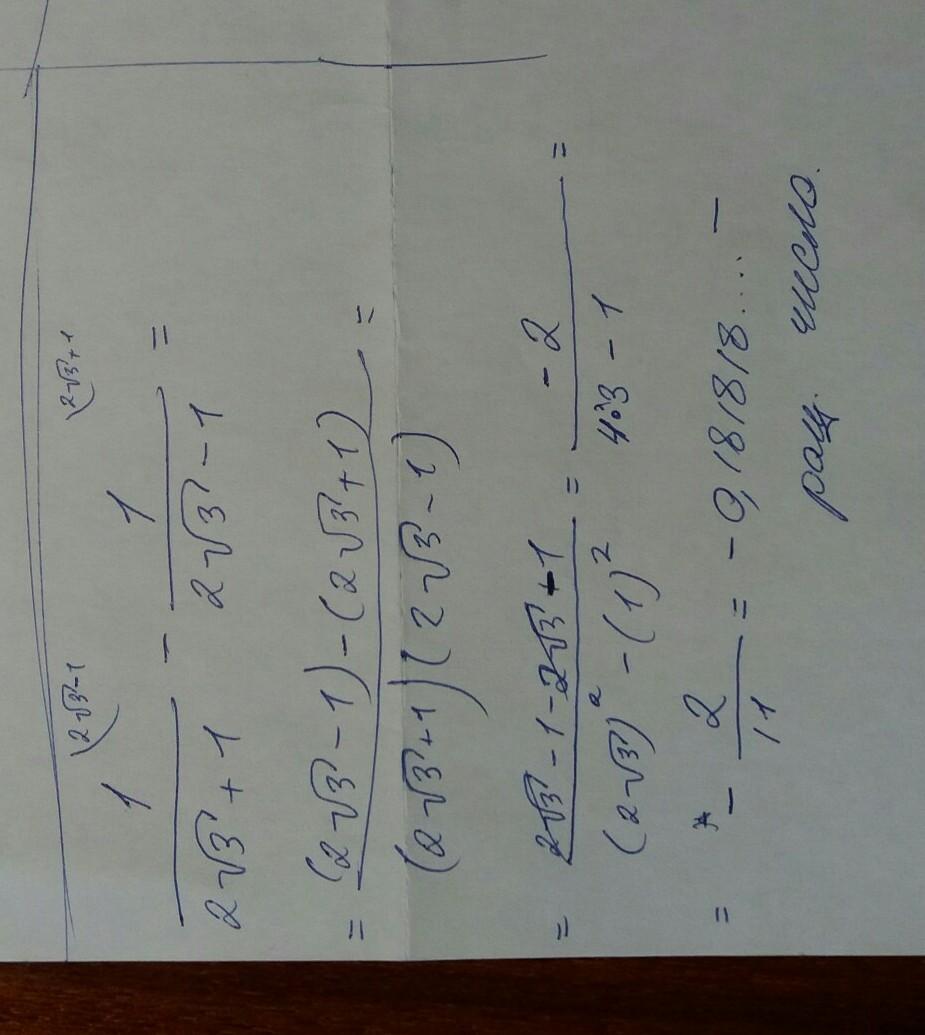 1 (2√3-1 / 2√3+1 - 1 (2√3+1 / 2√3-1 =
= (2√3-1)-(2√3+1) / (2√3+1)(2√3-1) =
= 2√3-1-2√3-1 / (2√3)² - (1)² = -2 / 4·3-1 =
= - 2/11 = -0,181818.... -
рац. число.